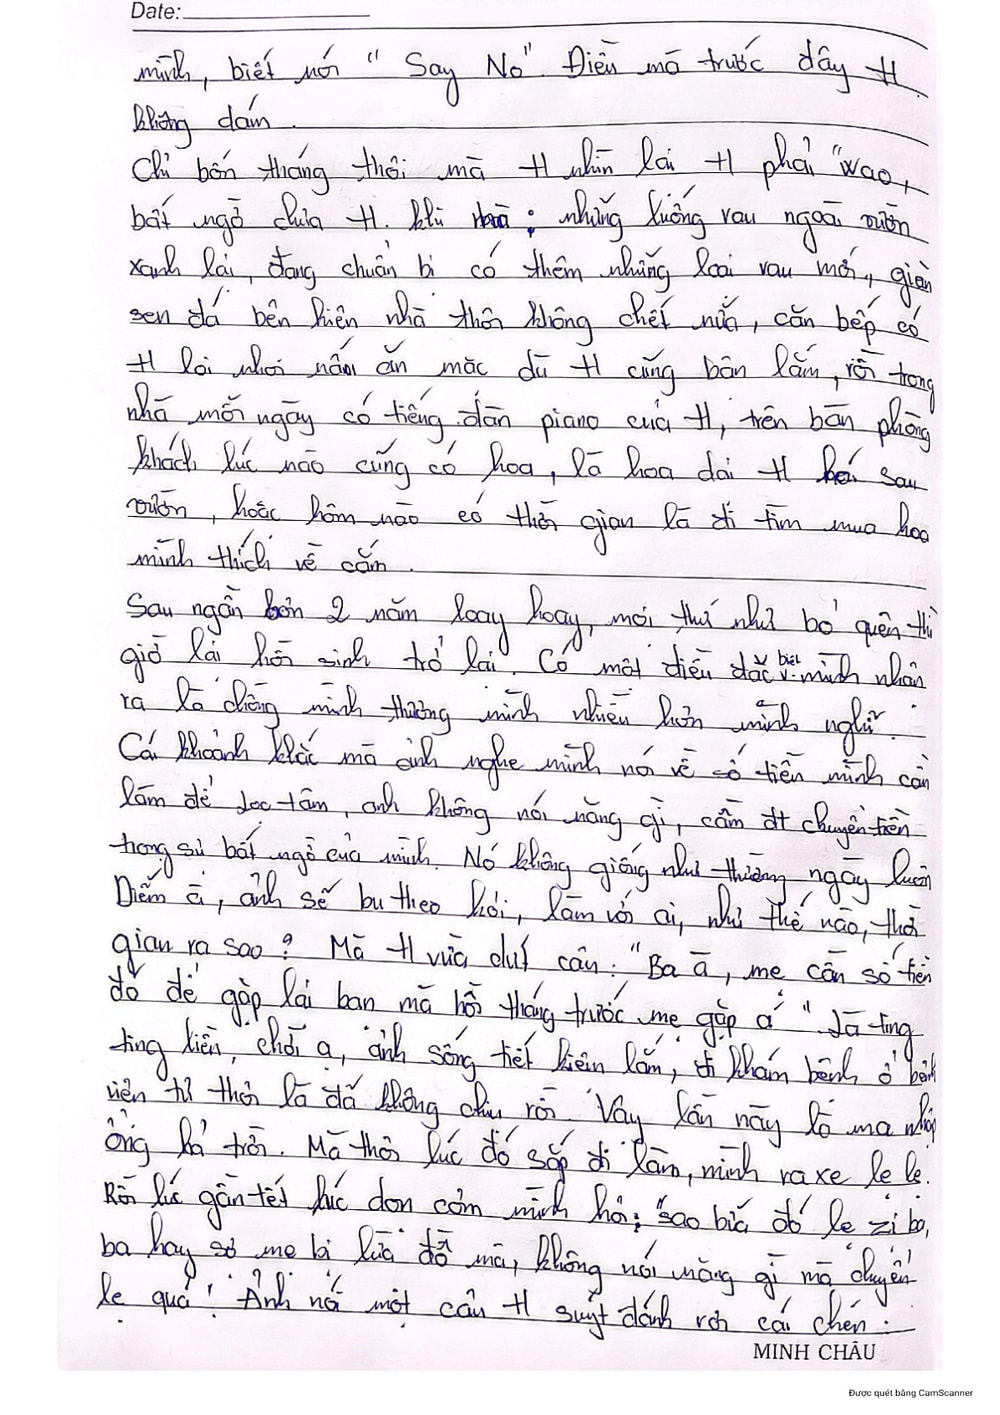 Date:
mình, biết nói "Say No". Điều mà trước đây H
không dám.
Chỉ bốn tháng thôi mà H nhìn lại H phải "Wao,
bất ngờ chưa H. khi mà: những luống rau ngoài vườn
xanh lại, đang chuẩn bị có thêm những loại rau mới, giàn
sen đá bên hiên nhà thôi không chết nữa, căn bếp có
H lại nhơi nấu ăn mặc dù H cũng bận lắm, rồi trong
nhà mỗi ngày có tiếng đàn piano của H, trên bàn phòng
khách lúc nào cũng có hoa, là hoa dại H hái sau
vườn, hoặc hôm nào có thời gian là đi tìm mua hoa
mình thích về cắm.
Sau ngần hơn 2 năm loay hoay, mọi thứ như bỏ quên thì
giờ lại hồi sinh trở lại. Có một điều đặc biệt mình nhận
ra là chồng mình thương mình nhiều hơn mình nghĩ.
Cái khoảnh khắc mà ảnh nghe mình nói về số tiền mình cần
làm để lọc tâm, anh không nói năng gì, cầm đt chuyển tiền
trong sự bất ngờ của mình. Nó không giống như thường ngày luôn
Diễm ạ, ảnh sẽ bu theo hỏi, làm với ai, như thế nào, thời
gian ra sao? Mà H vừa dứt câu: "Ba à, mẹ cần số tiền
đó để gặp lại bạn mà hồi tháng trước mẹ gặp á" là ting
ting liền, chời ạ, ảnh sống tiết kiệm lắm, đi khám bệnh ở bệnh
viện tư thôi là đã không chịu rồi. Vậy lần này là ma nhập
ổng hả trời. Mà thôi lúc đó sắp đi làm, mình ra xe lẹ lẹ.
Rồi lúc gần tết lúc dọn cơm mình hỏi: "sao bữa đó lẹ zị ba,
ba hay sợ mẹ bị lừa đồ mà, không nói năng gì mà chuyển
lẹ quá! Ảnh nói một câu H suýt đánh rơi cái chén:
MINH CHÂU
Được quét bằng CamScanner